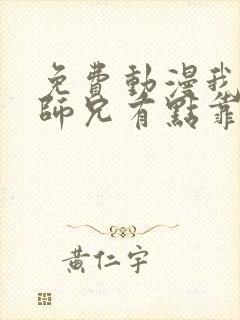 免費動漫我
師兄有點靠
黃仁宇